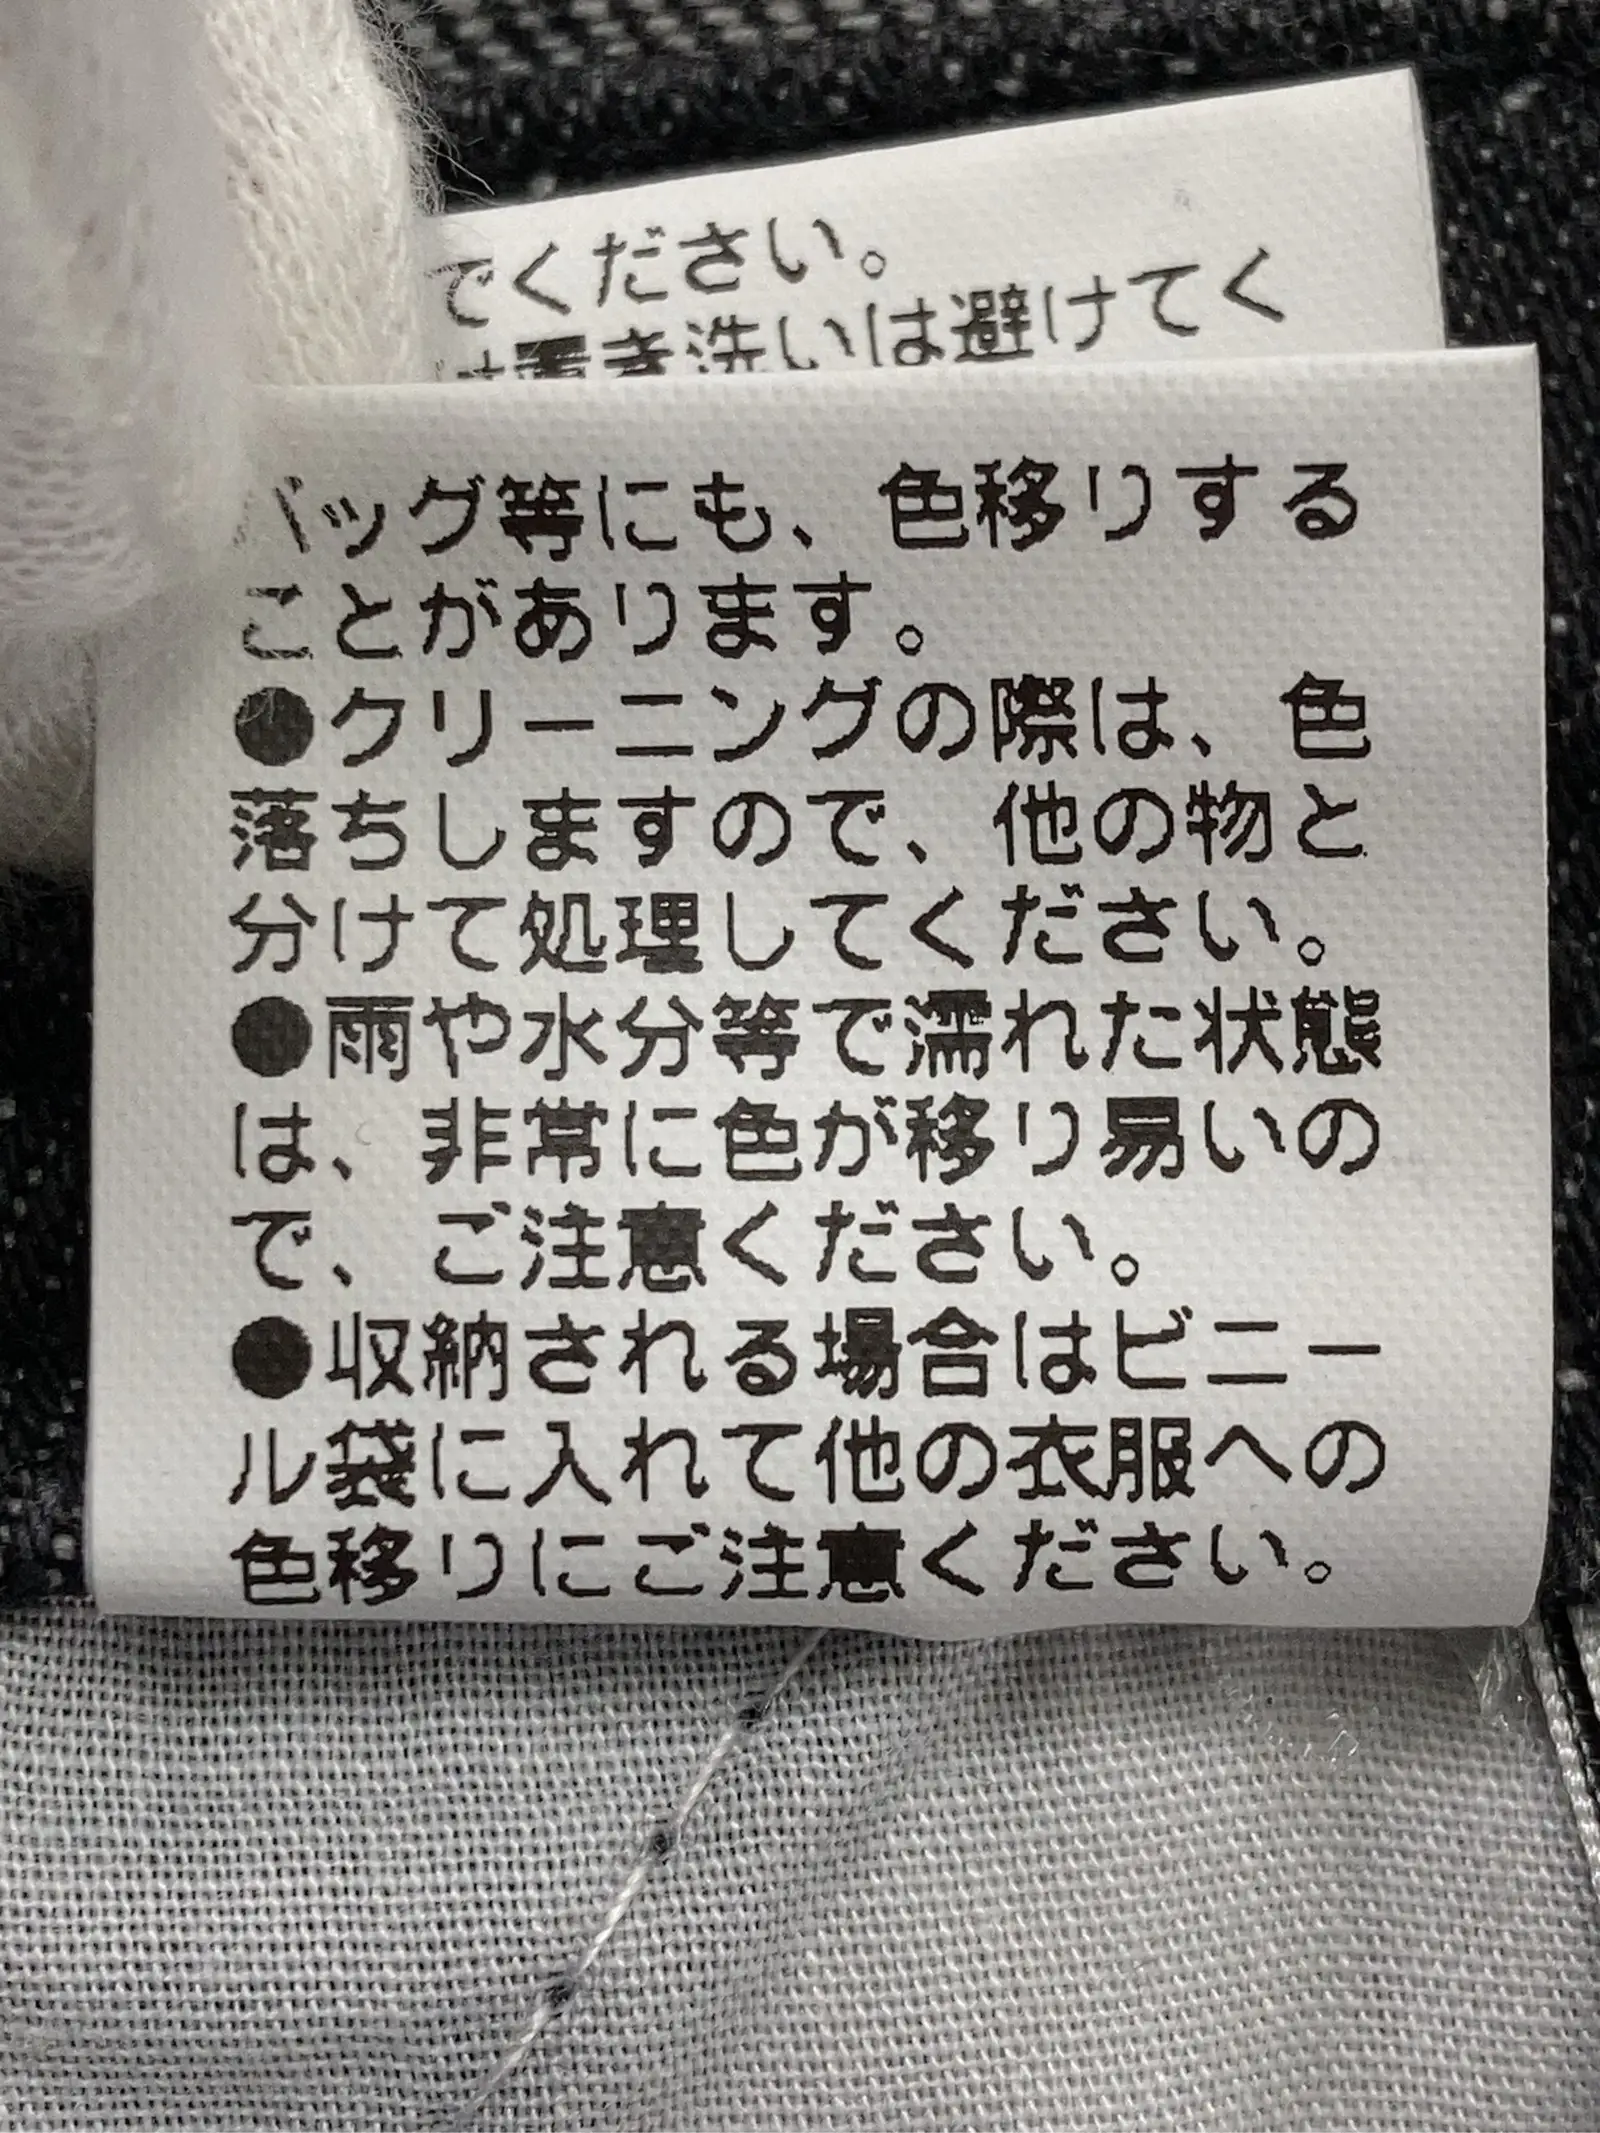 でください。
置き洗いは避けてく
バッグ等にも、色移りする
ことがあります。
●クリーニングの際は、色
落ちしますので、他の物と
分けて処理してください。
●雨や水分等で濡れた状態
は、非常に色が移り易いの
で、ご注意ください。
●収納される場合はビニー
ル袋に入れて他の衣服への
色移りにご注意ください。